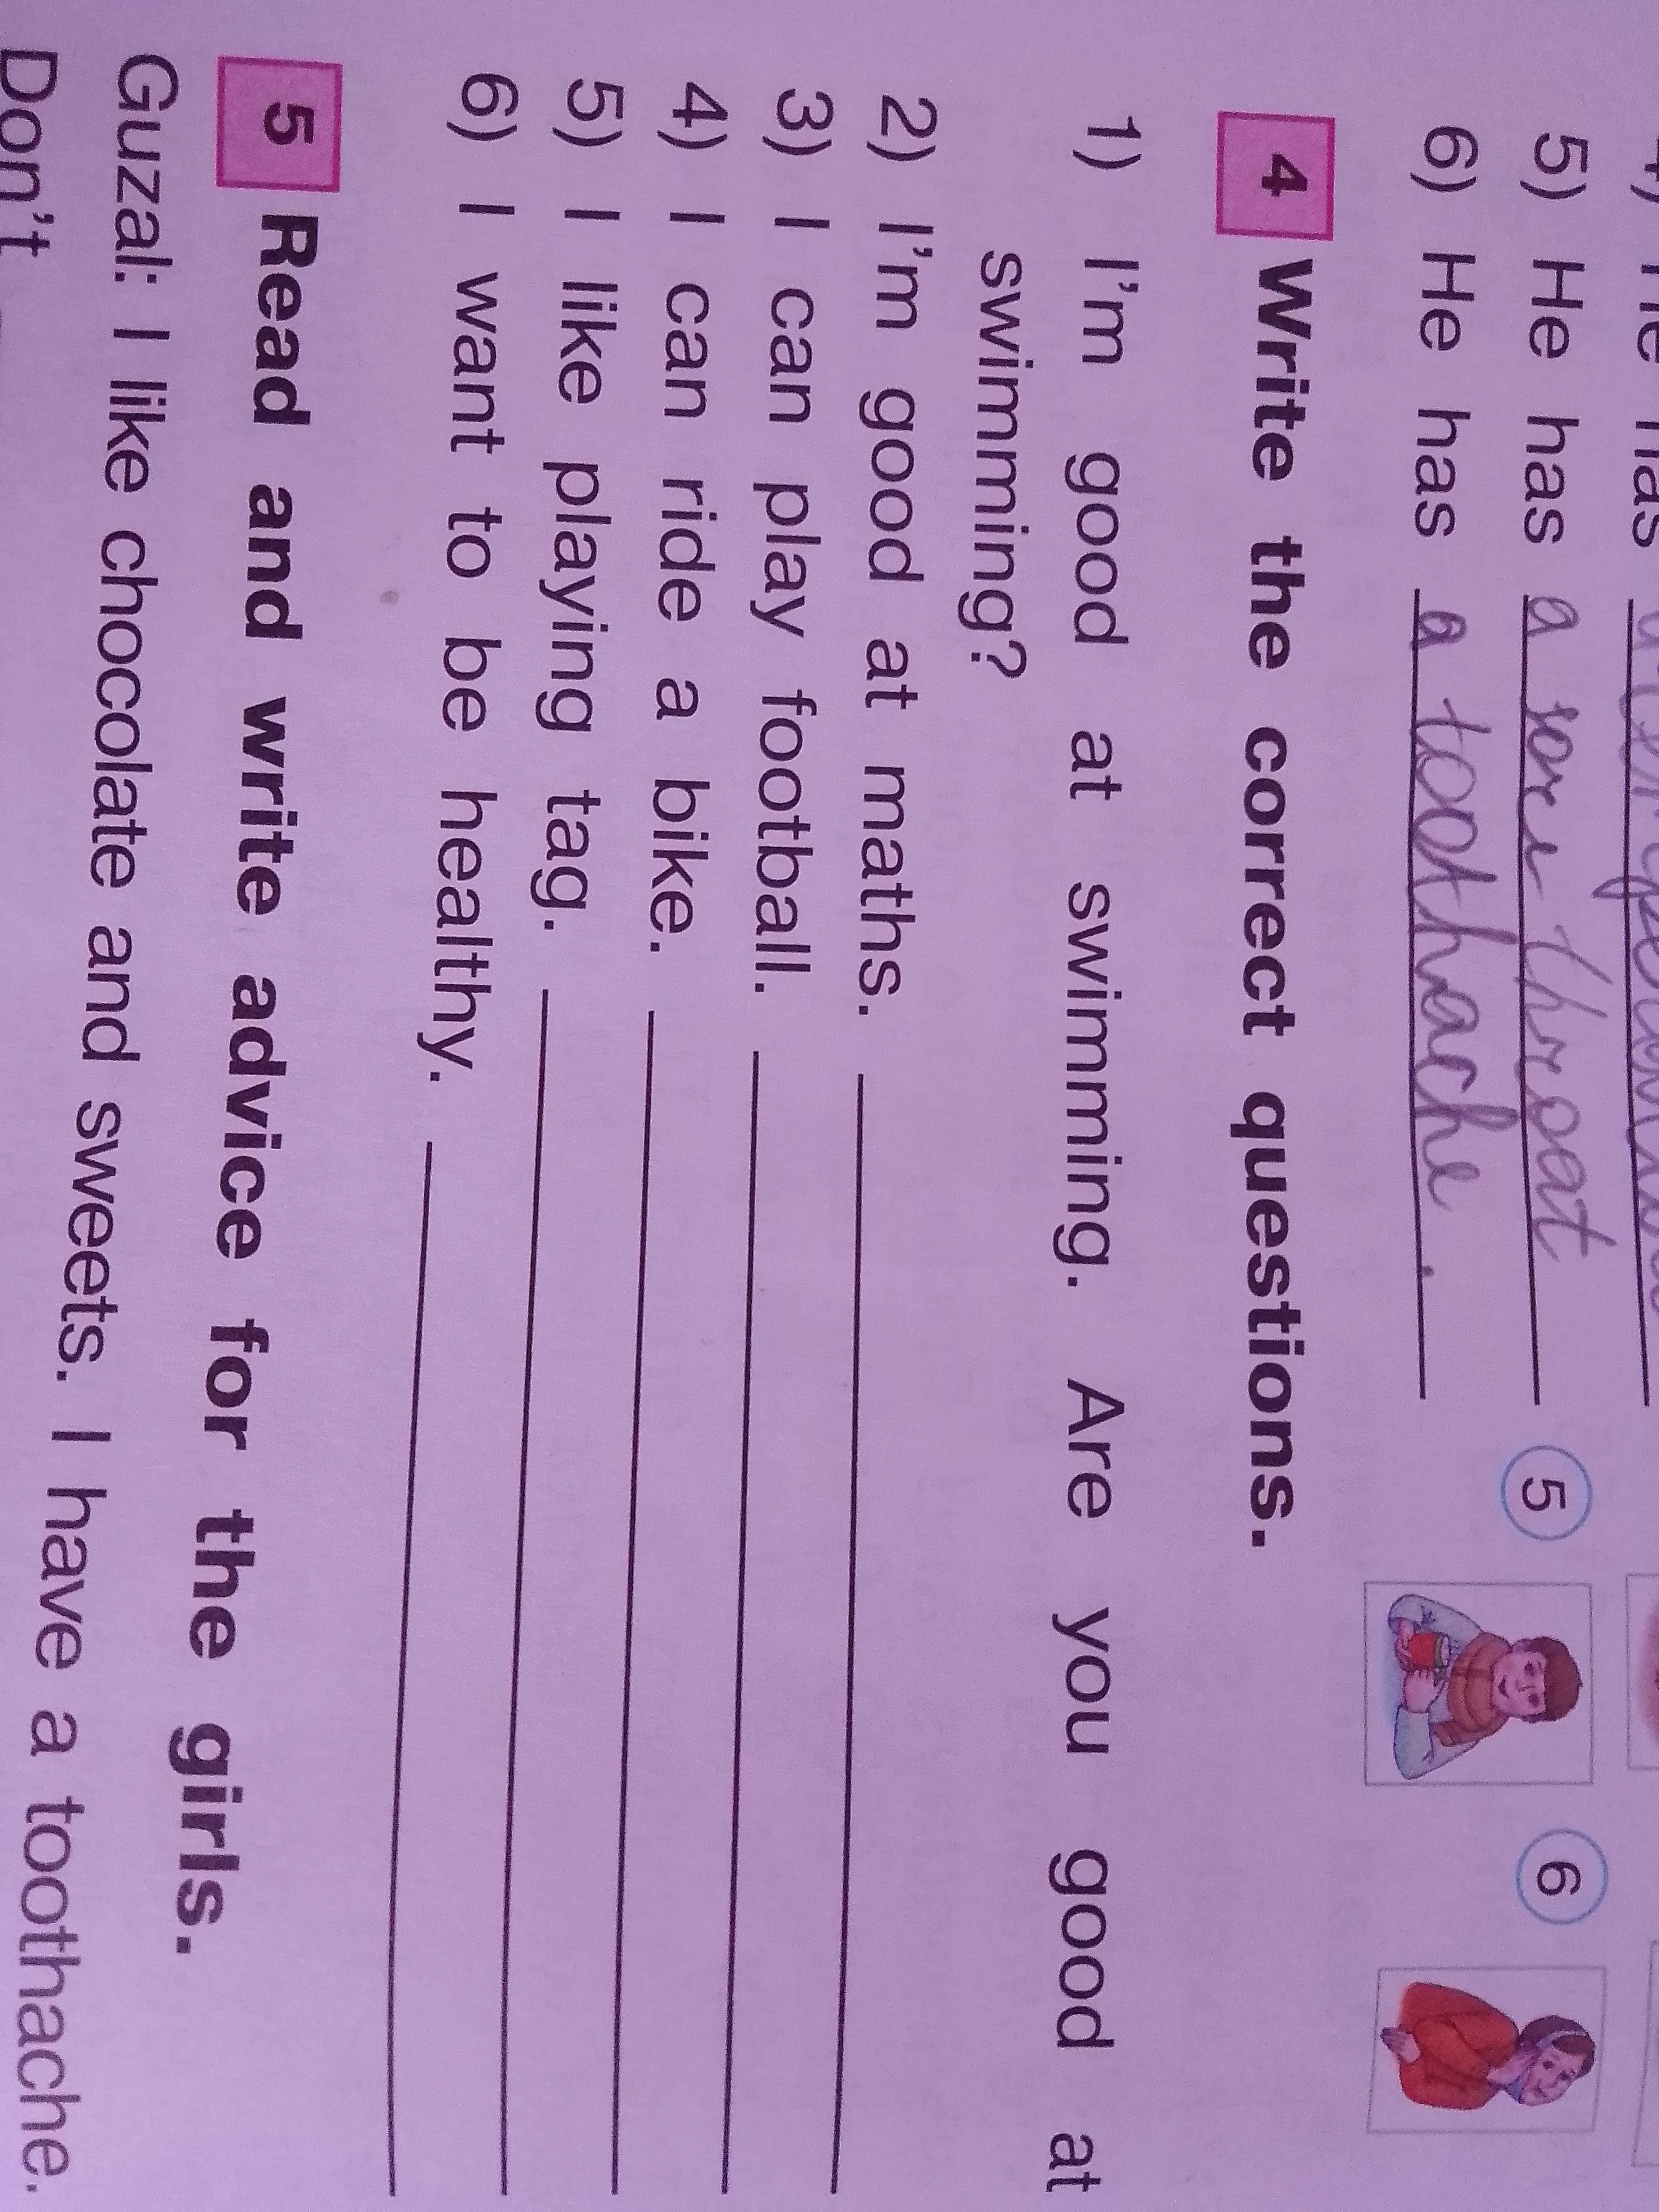 He has
5) He has a sore throat
6) He has a toothache.
5
6
4 Write the correct questions.
1) I'm good at swimming. Are you good at
swimming?
2) I'm good at maths.
3) I can play football.
4) I can ride a bike.
5) I like playing tag.
6) I want to be healthy.
5 Read and write advice for the girls.
Guzal: I like chocolate and sweets. I have a toothache.
Don't